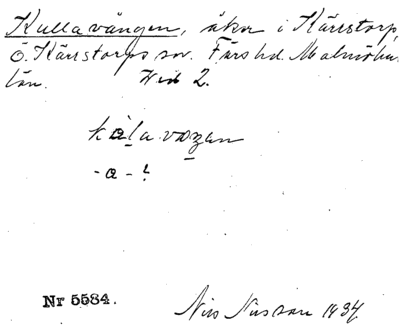 Kullavången, åker i Kärrstorp,
Ö. Kärrstorps sn. Färs hd. Malmöhus
län. Hed 2.
kàla vɑzan
-a-!
Nr 5584.
Nils Nilsson 1934